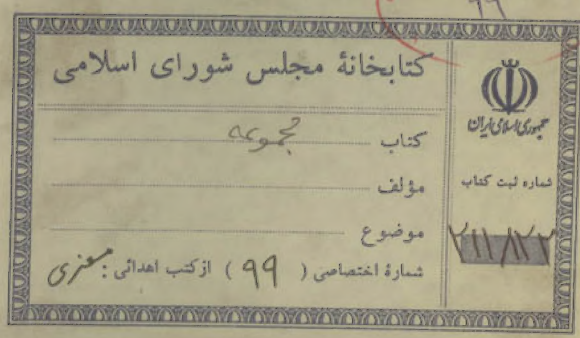 ۹۹
کتابخانهٔ مجلس شورای اسلامی
کتاب مجموعه
مؤلف
موضوع
شمارهٔ اختصاصی ( ۹۹ ) از کتب اهدائی :
جمهوری اسلامی ایران
شماره ثبت کتاب